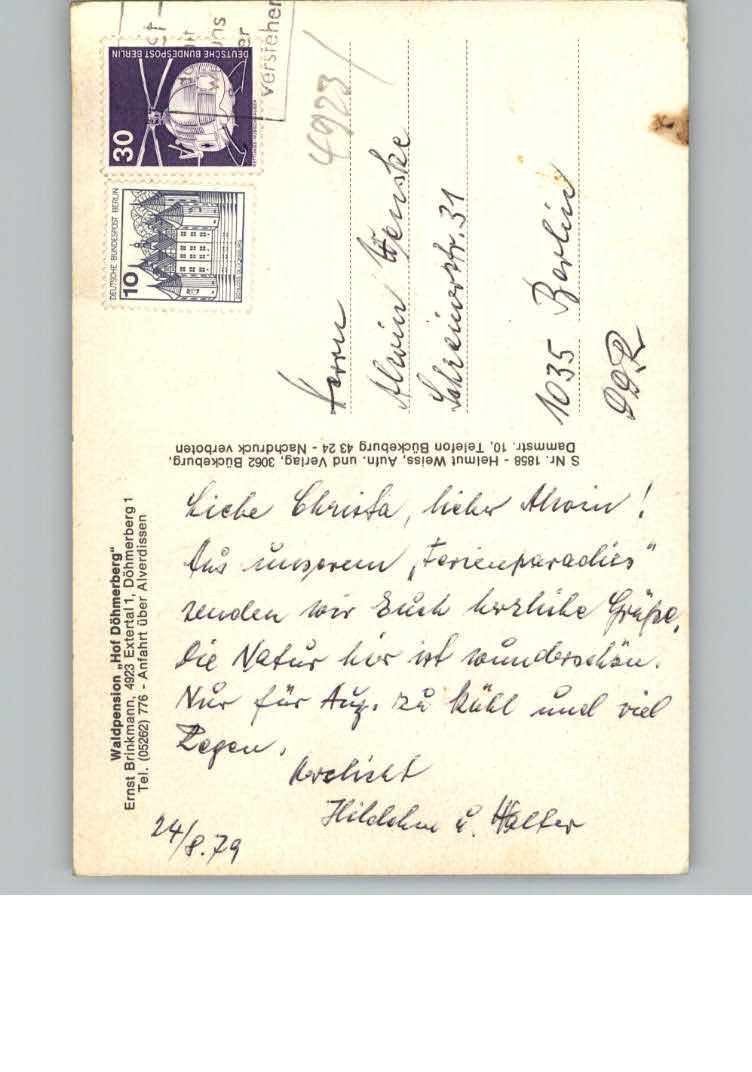 Waldpension „Hof Döhmerberg"
Ernst Brinkmann, 4923 Extertal 1, Döhmerberg 1
Tel. (05262) 776 - Anfahrt über Alverdissen
24/8.79
Liebe Christa, lieber Alwin!
Aus unserem „Ferienparadies"
senden wir Euch herzliche Grüße,
die Natur hier ist wunderschön.
Nur für Aug. zu kühl und viel
Regen.
Herzlichst
Hildchen u. Walter
S Nr. 1858 - Helmut Weiss, Aufn. und Verlag, 3062 Bückeburg,
Dammstr. 10, Telefon Bückeburg 43 24 - Nachdruck verboten
DEUTSCHE BUNDESPOST BERLIN
30
DEUTSCHE BUNDESPOST BERLIN
10
verstehen
4923/
Herrn
Alwin Wenske
Schreinerstr. 31
1035 Berlin
DDR